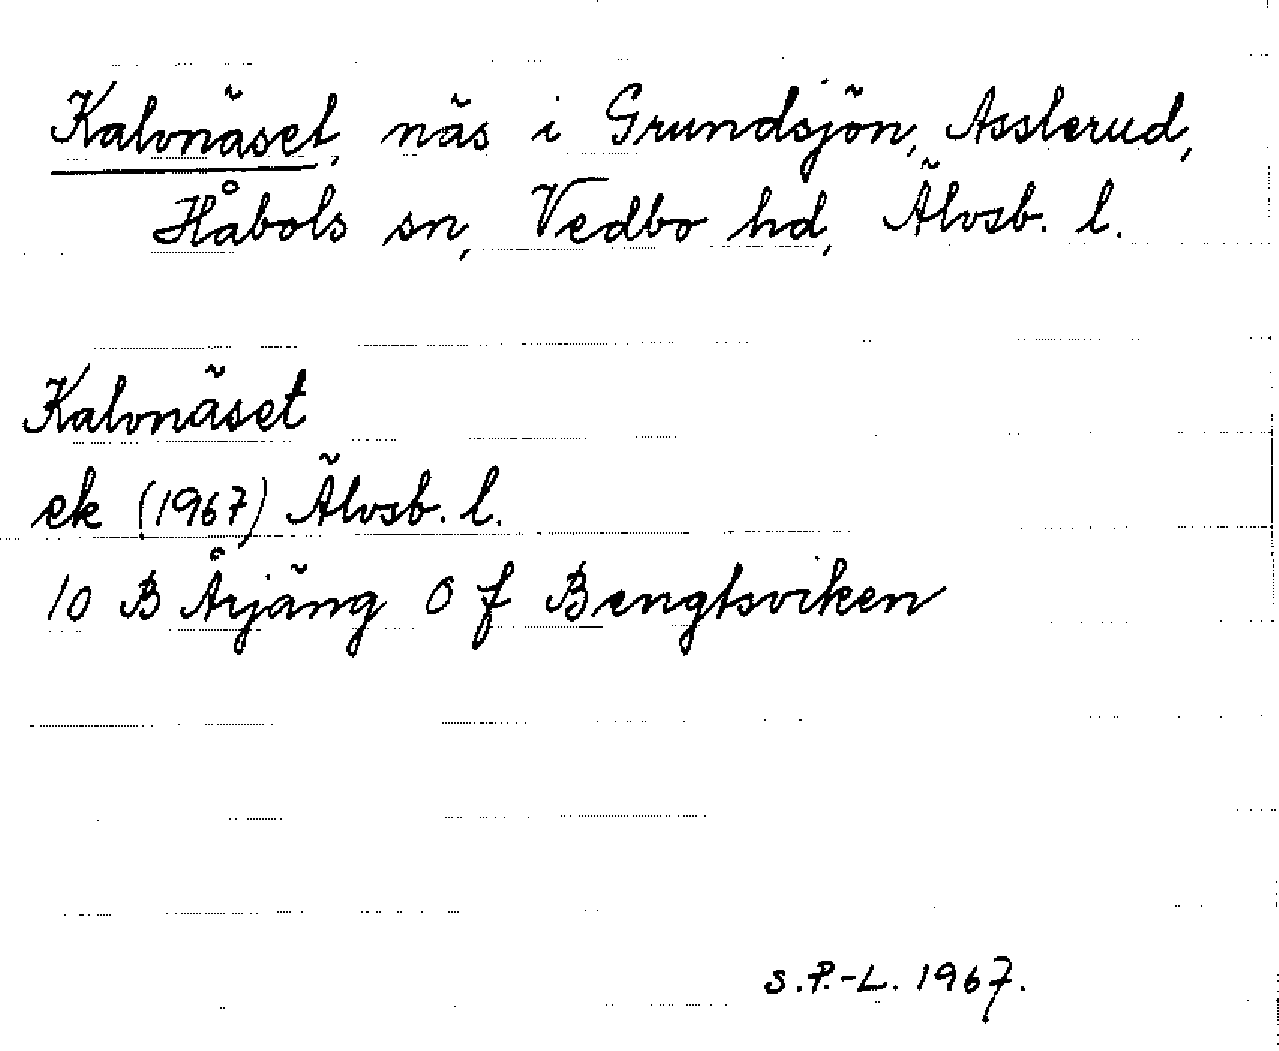 Kalvnäset, näs i Grundsjön, Asslerud,
Håbols sn, Vedbo hd, Älvsb. l.
Kalvnäset
ek (1967) Älvsb. l.
10 B Årjäng 0 f Bengtsviken
S.P.-L. 1967.